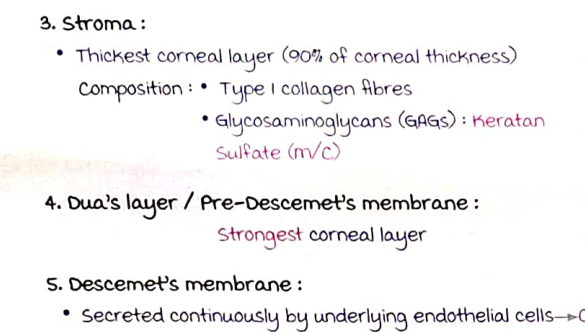 3. Stroma :
• Thickest corneal layer (90% of corneal thickness)
Composition : • Type I collagen fibres
• Glycosaminoglycans (GAGs) : Keratan
Sulfate (m/c)
4. Dua's layer / Pre-Descemet's membrane :
Strongest corneal layer
5. Descemet's membrane :
• Secreted continuously by underlying endothelial cells→